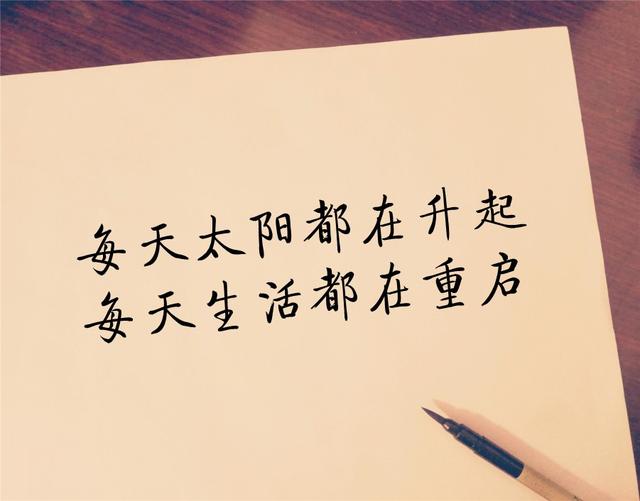 每天太阳都在升起
每天生活都在重启